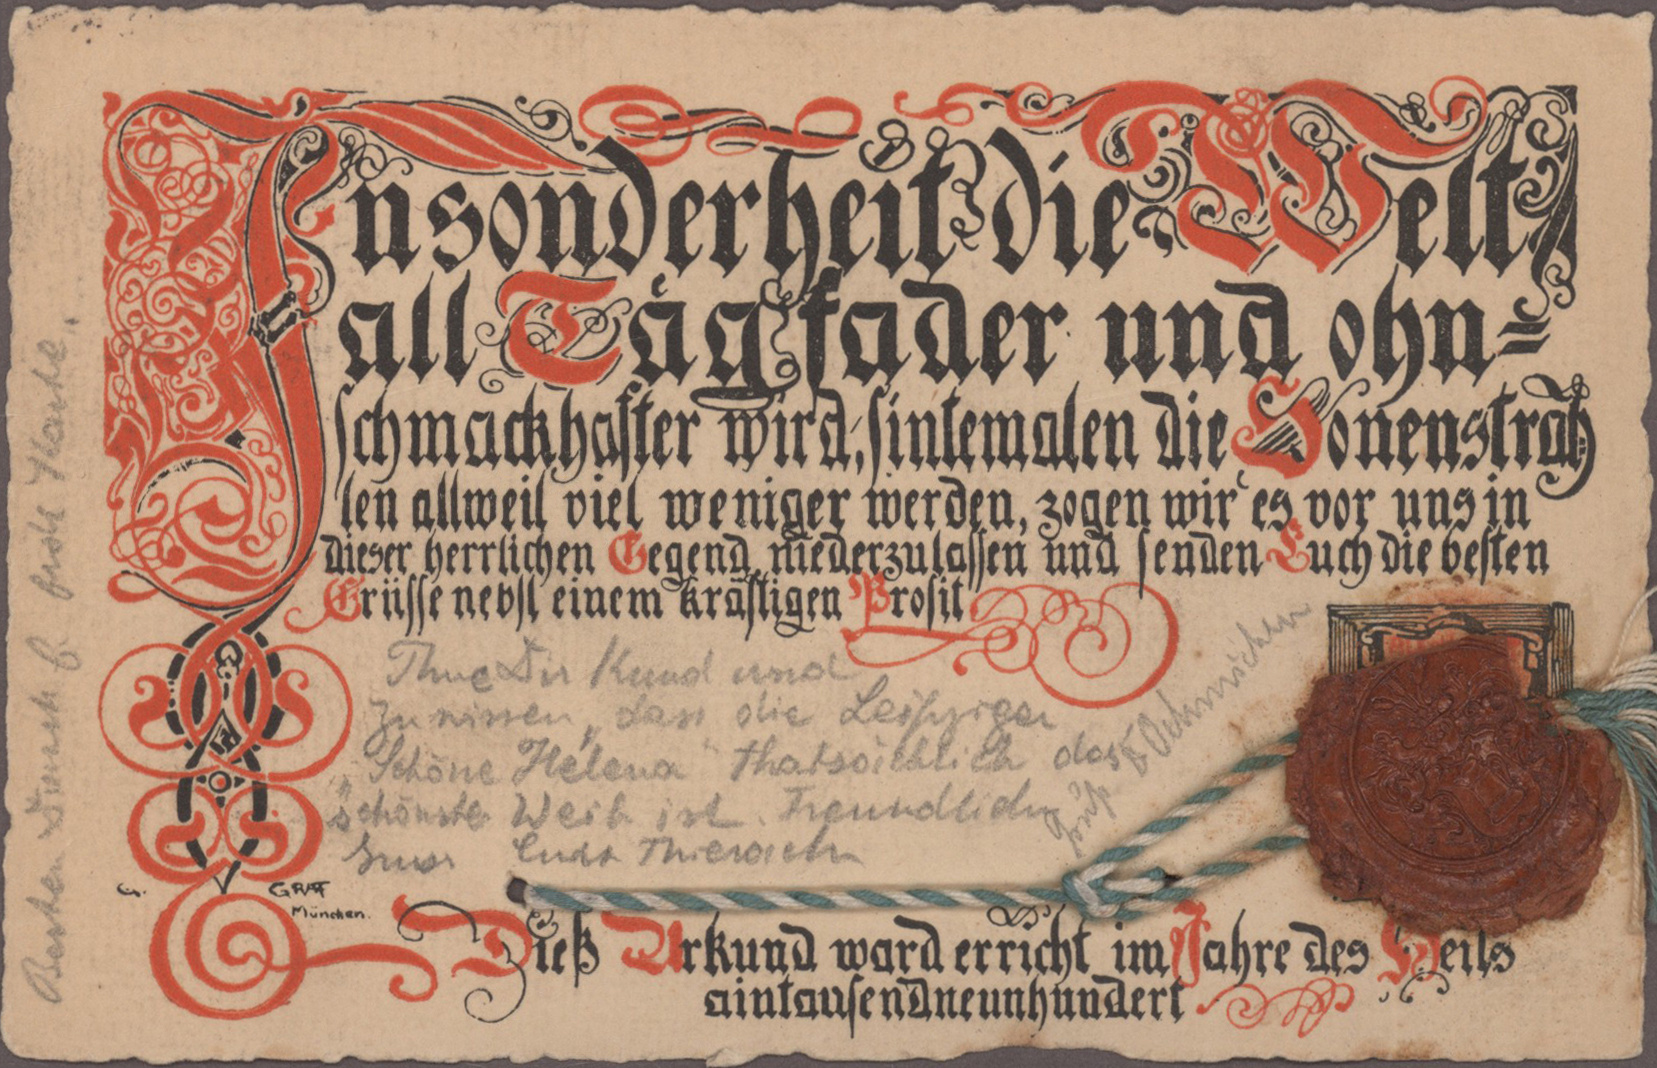 Insonderheit die Welt
all Täg fader und ohn=
schmackhafter wird, sintemalen die Sonenstrah=
len allweil viel weniger werden, zogen wir es vor uns in
dieser herrlichen Gegend niederzulassen und senden Euch die besten
Grüsse nebst einem kräftigen Prosit
Thue Dir Kund und
zu wissen, dass die Leipziger
"Schöne Helena" thatsächlich das
schönste Weib ist. Freundlichen
Gruss Curt
Gruß
Besten Dank f. frdl. Karte.
G. GRAF
München.
Dieß Urkund ward erricht im Jahre des Heils
aintausendneunhundert